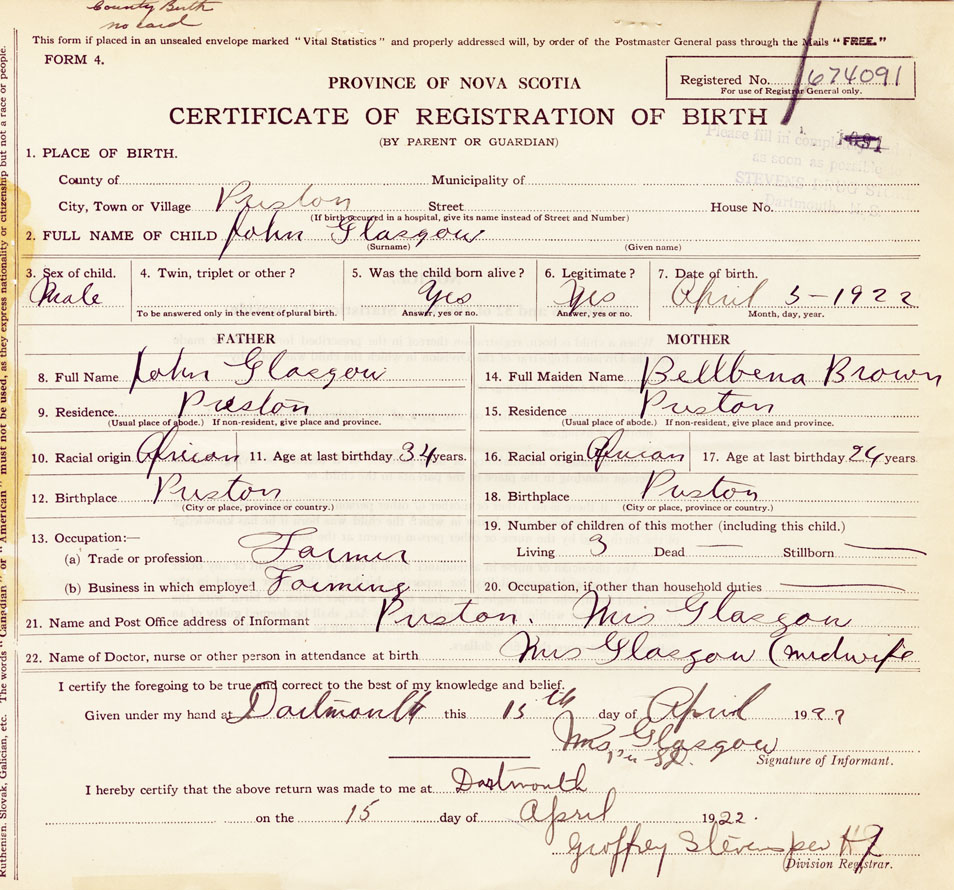 County Birth
no card
This form if placed in an unsealed envelope marked "Vital Statistics" and properly addressed will, by order of the Postmaster General pass through the Mails "FREE."
FORM 4.
Registered No. 674091
For use of Registrar General only.
PROVINCE OF NOVA SCOTIA
CERTIFICATE OF REGISTRATION OF BIRTH
(BY PARENT OR GUARDIAN)
Please fill in
as soon as possible
STEVENS DRUG STORE
Dartmouth, N.S.
1. PLACE OF BIRTH.
County of Municipality of
City, Town or Village Preston Street House No.
(If birth occurred in a hospital, give its name instead of Street and Number)
2. FULL NAME OF CHILD John Glasgow
(Surname) (Given name)
3. Sex of child. 4. Twin, triplet or other? 5. Was the child born alive? 6. Legitimate? 7. Date of birth.
Male Yes Yes April 5-1922
To be answered only in the event of plural birth. Answer, yes or no. Answer, yes or no. Month, day, year.
FATHER MOTHER
8. Full Name John Glasgow 14. Full Maiden Name Bellbena Brown
9. Residence. Preston 15. Residence Preston
(Usual place of abode.) If non-resident, give place and province. (Usual place of abode.) If non-resident, give place and province.
10. Racial origin African 11. Age at last birthday 34 years. 16. Racial origin African 17. Age at last birthday 24 years
12. Birthplace Preston 18. Birthplace Preston
(City or place, province or country.) (City or place, province or country.)
13. Occupation:— 19. Number of children of this mother (including this child.)
(a) Trade or profession Farmer Living 3 Dead — Stillborn —
(b) Business in which employed Farming 20. Occupation, if other than household duties —
21. Name and Post Office address of Informant Preston. Mrs Glasgow
22. Name of Doctor, nurse or other person in attendance at birth Mrs Glasgow (midwife
I certify the foregoing to be true and correct to the best of my knowledge and belief.
Given under my hand at Dartmouth this 15th day of April 1922
Mrs Glasgow
Signature of Informant.
I hereby certify that the above return was made to me at Dartmouth
on the 15 day of April 1922.
Geoffrey Stevens per
Division Registrar.
Ruthenian, Slovak, Galician, etc. The words "Canadian" or "American" must not be used, as they express nationality or citizenship but not a race or people.